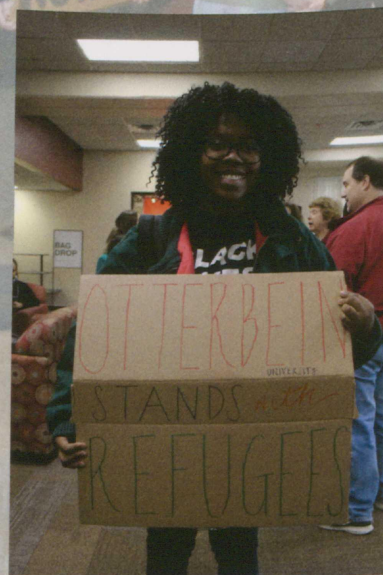 BAG
DROP
LACK
OTTERBEIN
UNIVERSITY
STANDS with
REFUGEES